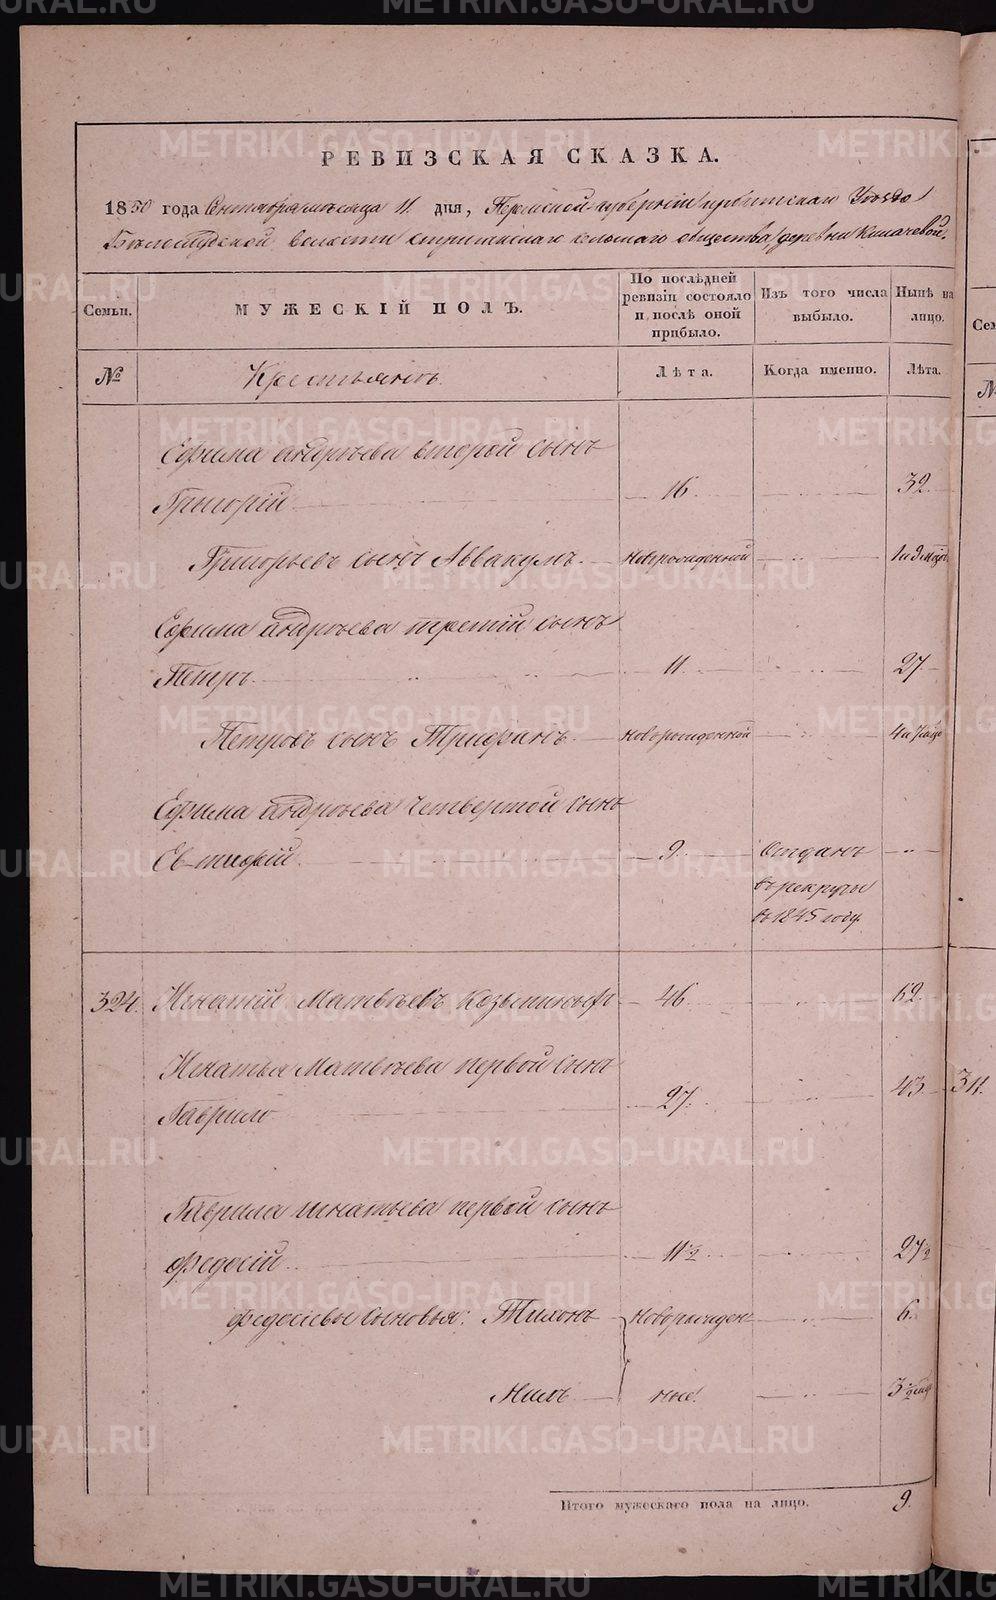 РЕВИЗСКАЯ СКАЗКА.
1850 года Сентября месяца 11 дня, Пермской губернии Ирбитскаго Уезда
Белослудской волости Стриганскаго сельскаго общества, деревни Кекачевой.
Семьи.
МУЖЕСКІЙ ПОЛЪ.
По послѣдней ревизіи состояло и послѣ оной прибыло.
Изъ того числа выбыло.
Нынѣ на лицо.
№
Крестьянъ.
Лѣта.
Когда именно.
Лѣта.
Ефима Андреева второй сынъ
Григорій 16. 32.
Григорьевъ сынъ Аввакумъ новорожденной 1 и 9 мѣся
Ефима Андреева третій сынъ
Петръ. 11. 27.
Петровъ сынъ Трифанъ новорожденной
Ефима Андреева четвертой сынъ
Евтифій 9. Отданъ
въ рекруты
въ 1845 году.
324. Игнатій Матвеевъ 46 62.
Игнатья Матвеева первой сынъ
Гаврило 27. 43.
Гаврила Игнатьева первой сынъ
Федосій 11 1/2 27 1/2
Федосіевы сыновья: Тихонъ Новорожден 6.
Нилъ ные. 3 1/2
Итого мужескаго пола на лицо. 9.
METRIKI.GASO-URAL.RU